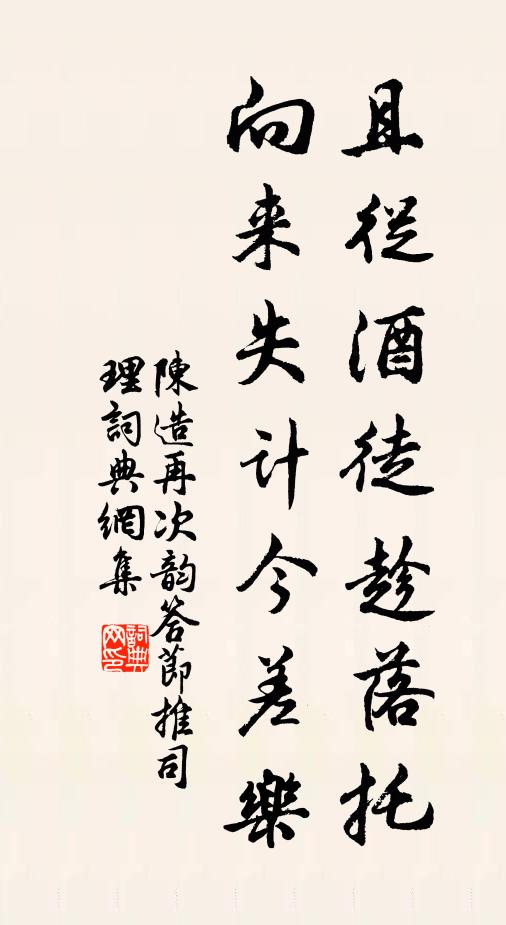 且從酒徒趁落托
向来失计今差樂
陳造再次韵答節推司
理詞典網集
詞典網印